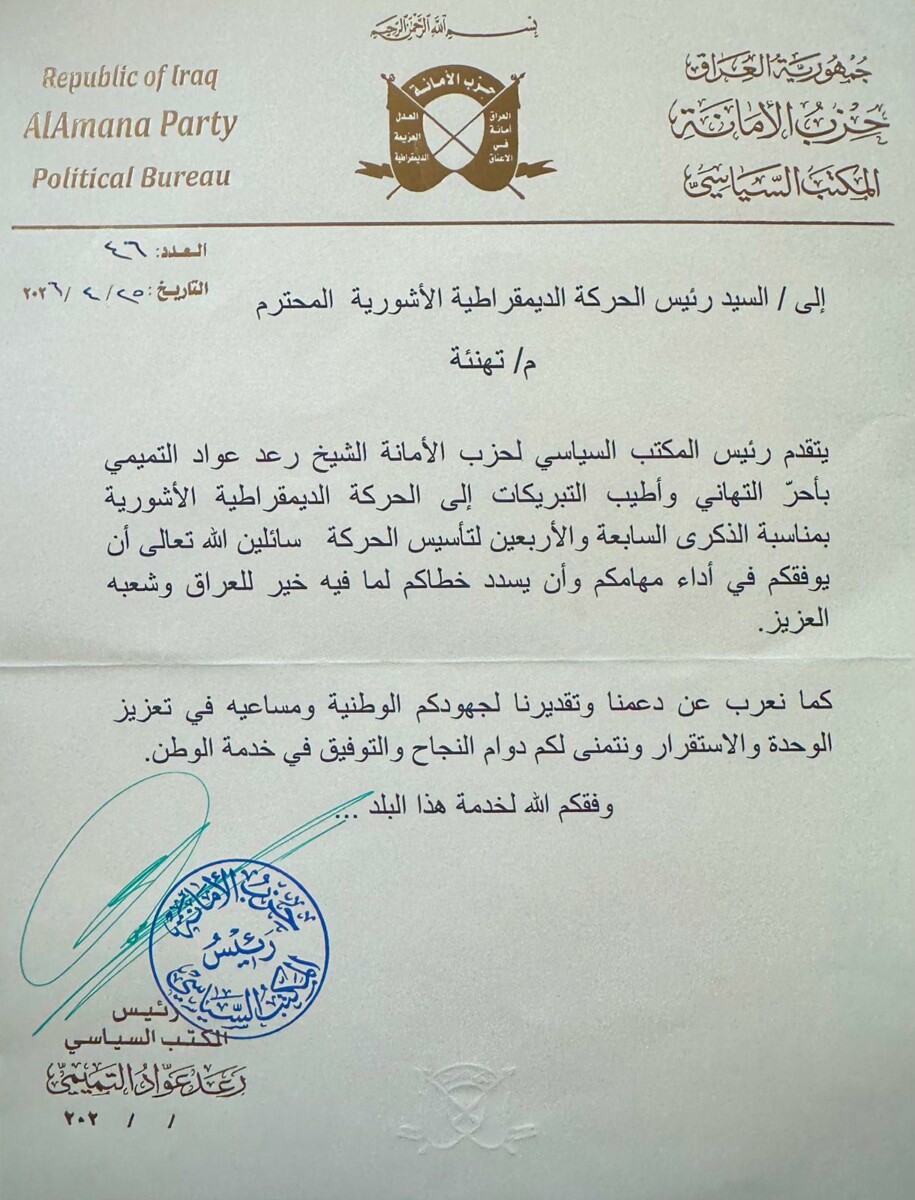 بسم الله الرحمن الرحيم
Republic of Iraq
AlAmana Party
Political Bureau
حزب الأمانة
العراق
أمانة
في
الاعناق
العدل
العزيمة
الديمقراطية
جمهورية العراق
حزب الأمانة
المكتب السياسي
العدد: ٤٦
التاريخ: ٢٥/ ٤ /٢٠٢٦
إلى / السيد رئيس الحركة الديمقراطية الأشورية المحترم
م/ تهنئة
يتقدم رئيس المكتب السياسي لحزب الأمانة الشيخ رعد عواد التميمي
بأحرّ التهاني وأطيب التبريكات إلى الحركة الديمقراطية الأشورية
بمناسبة الذكرى السابعة والأربعين لتأسيس الحركة سائلين الله تعالى أن
يوفقكم في أداء مهامكم وأن يسدد خطاكم لما فيه خير للعراق وشعبه
العزيز.
كما نعرب عن دعمنا وتقديرنا لجهودكم الوطنية ومساعيه في تعزيز
الوحدة والاستقرار ونتمنى لكم دوام النجاح والتوفيق في خدمة الوطن.
وفقكم الله لخدمة هذا البلد ...
حزب الأمانة
رئيس
المكتب السياسي
رئيس
المكتب السياسي
رعد عواد التميمي
/ / ٢٠٢